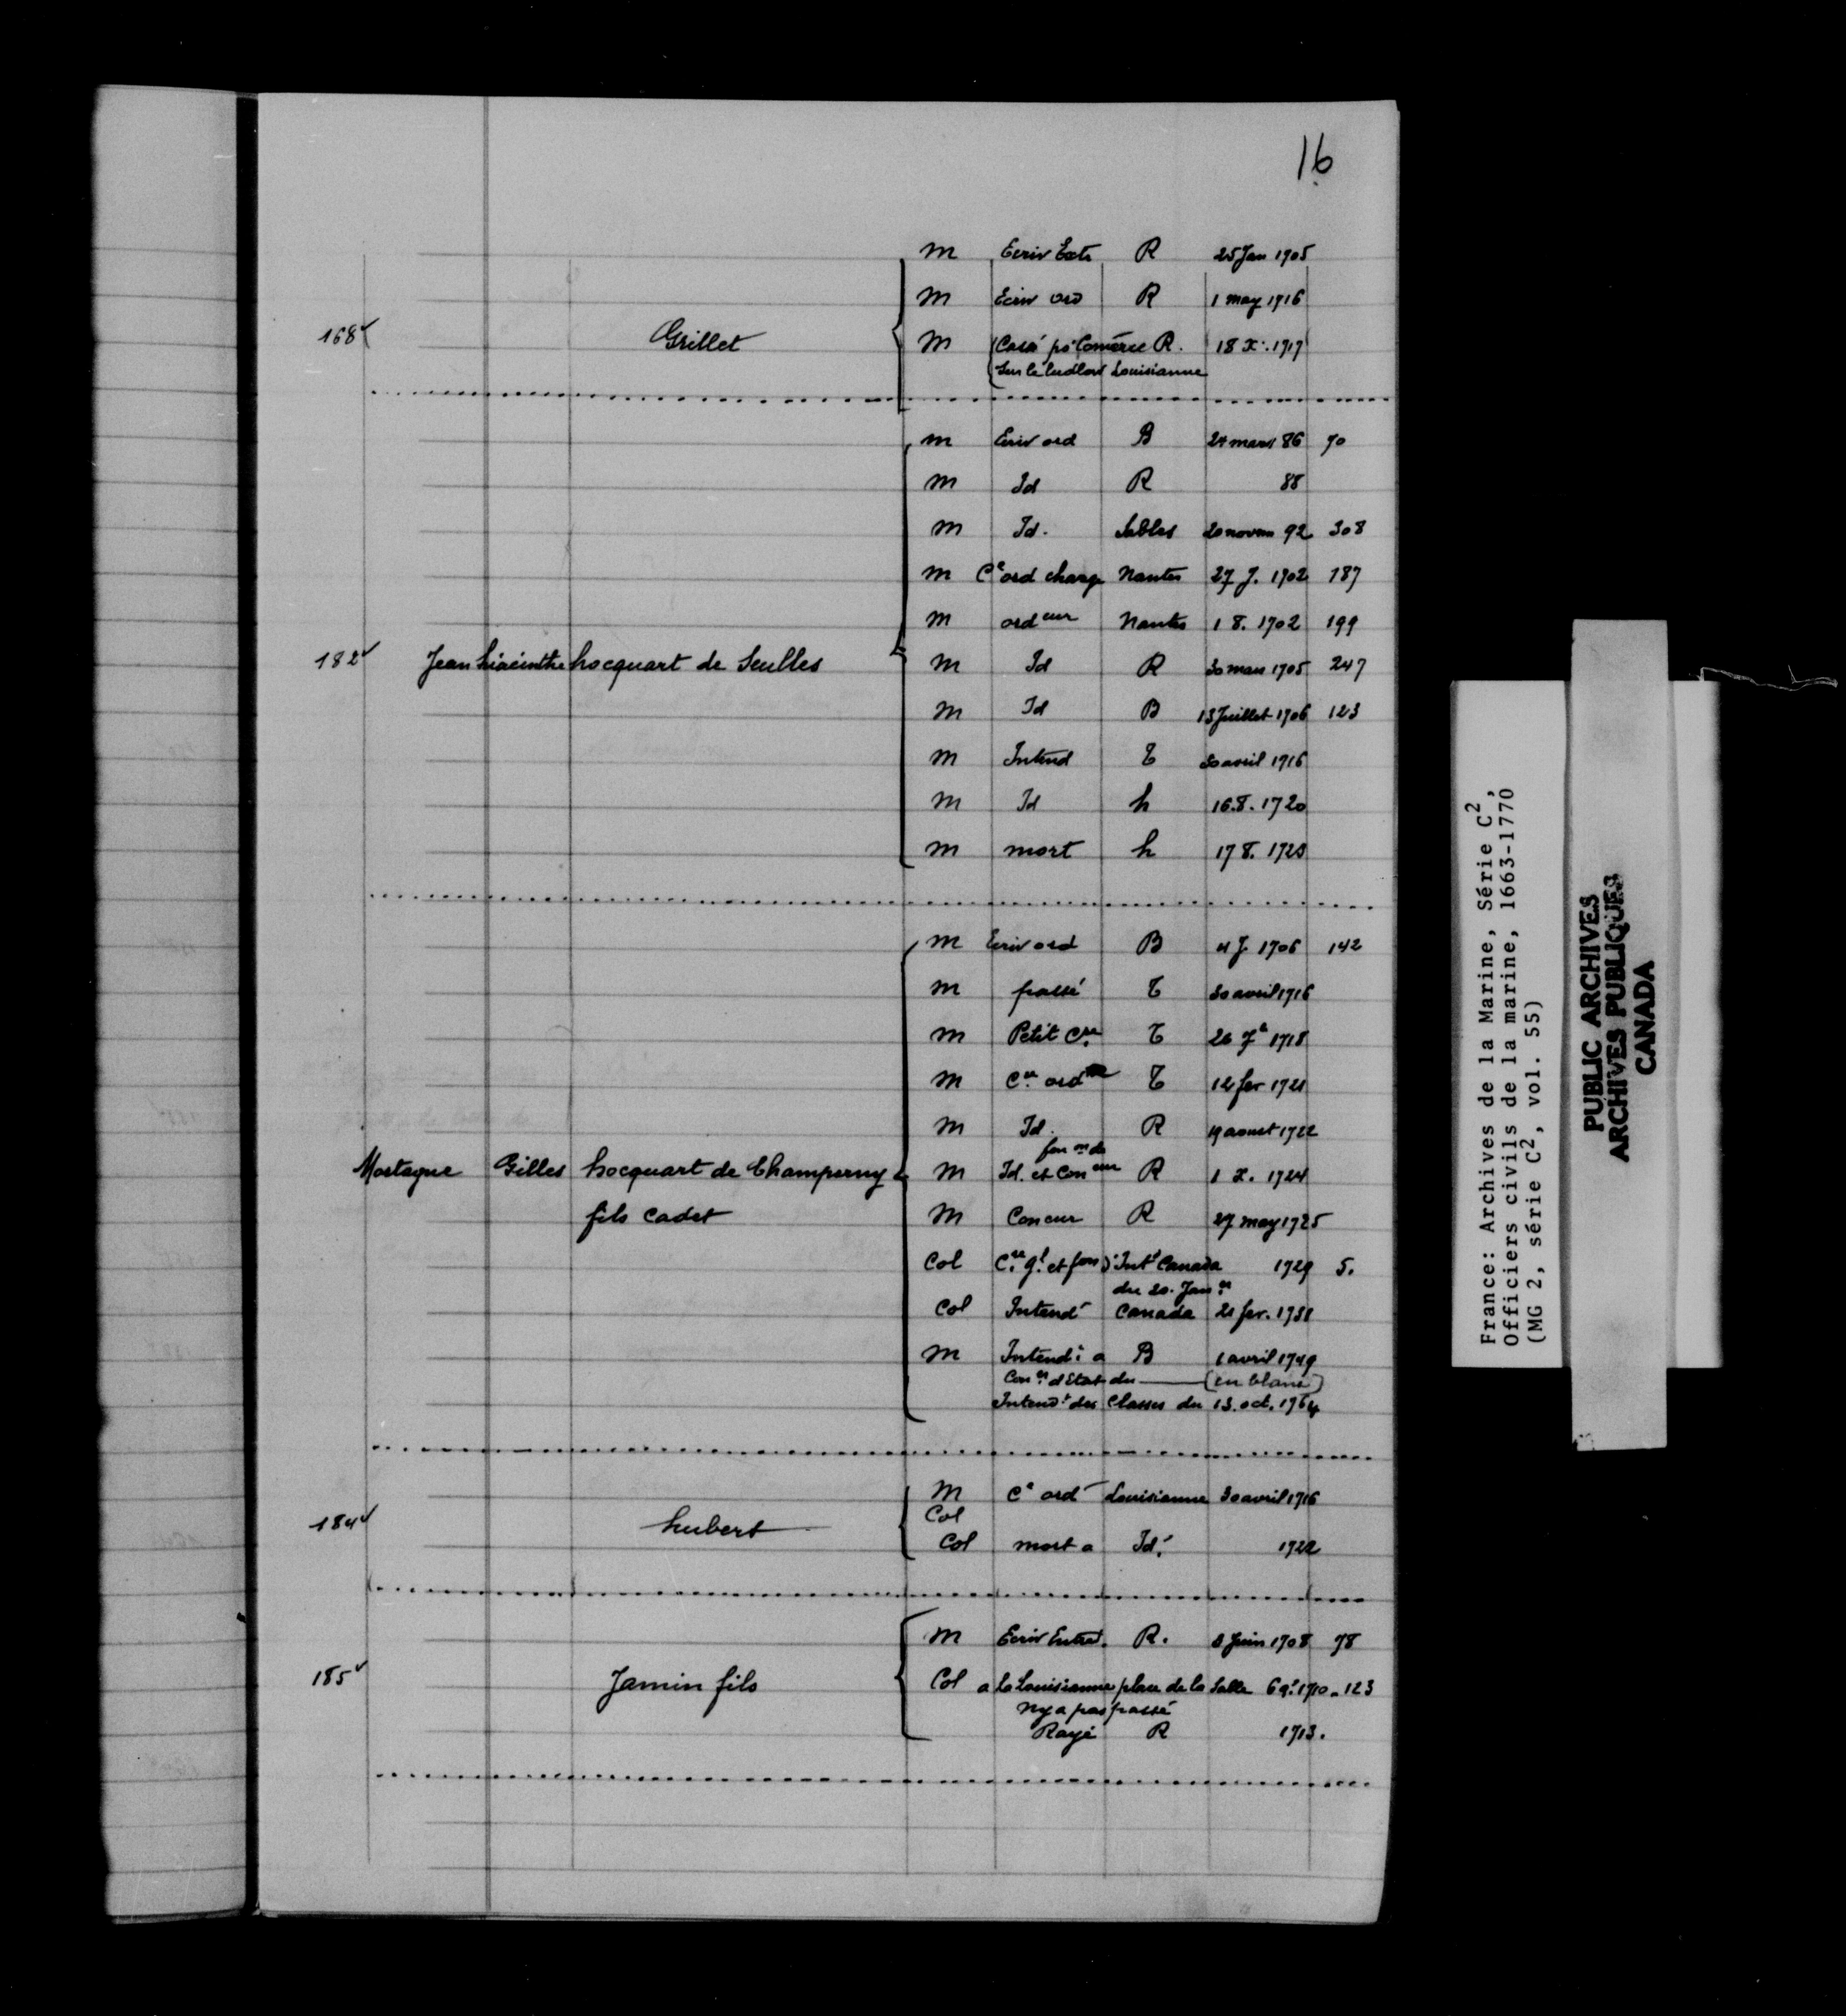 16
m Ecriv Exts R 25 Jan 1705
m Ecriv ord R 1 may 1716
168v Grillet m pr Comerce R. 18 X. 1717
Sur le ludlow Louisianne
m Ecriv ord B 24 mars 86 70
m Id R 88
m Id. Sables 20 novem 92 308
m Ce ord charge Nantes 27 J. 1702 187
m ord eur Nantes 1 8. 1702 199
182v Jean hiacinthe hocquart de Seulles m Id R 30 mars 1705 247
m Id B 13 Juillet 1706 123
m Intend T 30 avril 1716
m Id h 16.8. 1720
m mort h 17 8. 1723
m Ecriv ord B 4 J 1706 142
m passé T 30 avril 1716
m Petit Cre T 26 7e 1718
m Cre ord re T 12 fer 1721
m Id. R 19 aoust 1722
fon on de
Mortagne Gilles hocquart de Champerny m Id. et Con eur R 1 X. 1724
fils cadet m Con eur R 27 may 1725
Col Cre gl et fons d'Intt Canada 1729 5.
du 20. Jan er
Col Intendt Canada 21 fer. 1731
m Intendt a B 1 avril 1749
Con er d'Etat du (en blanc)
Intendt des Classes du 13. oct. 1764
m Ce ord Louisianne 30 avril 1716
184v hubert Col
Col mort a Id. 1722
m Ecriv Entret. R. 8 Juin 1708 78
185v Jamin fils Col a la Louisianne place de la Salle 6 9. 1710. 123
ny a pas passé
Rayé R 1713.
France: Archives de la Marine, Série C2,
Officiers civils de la marine, 1663-1770
(MG 2, série C2, vol. 55)
PUBLIC ARCHIVES
ARCHIVES PUBLIQUES
CANADA